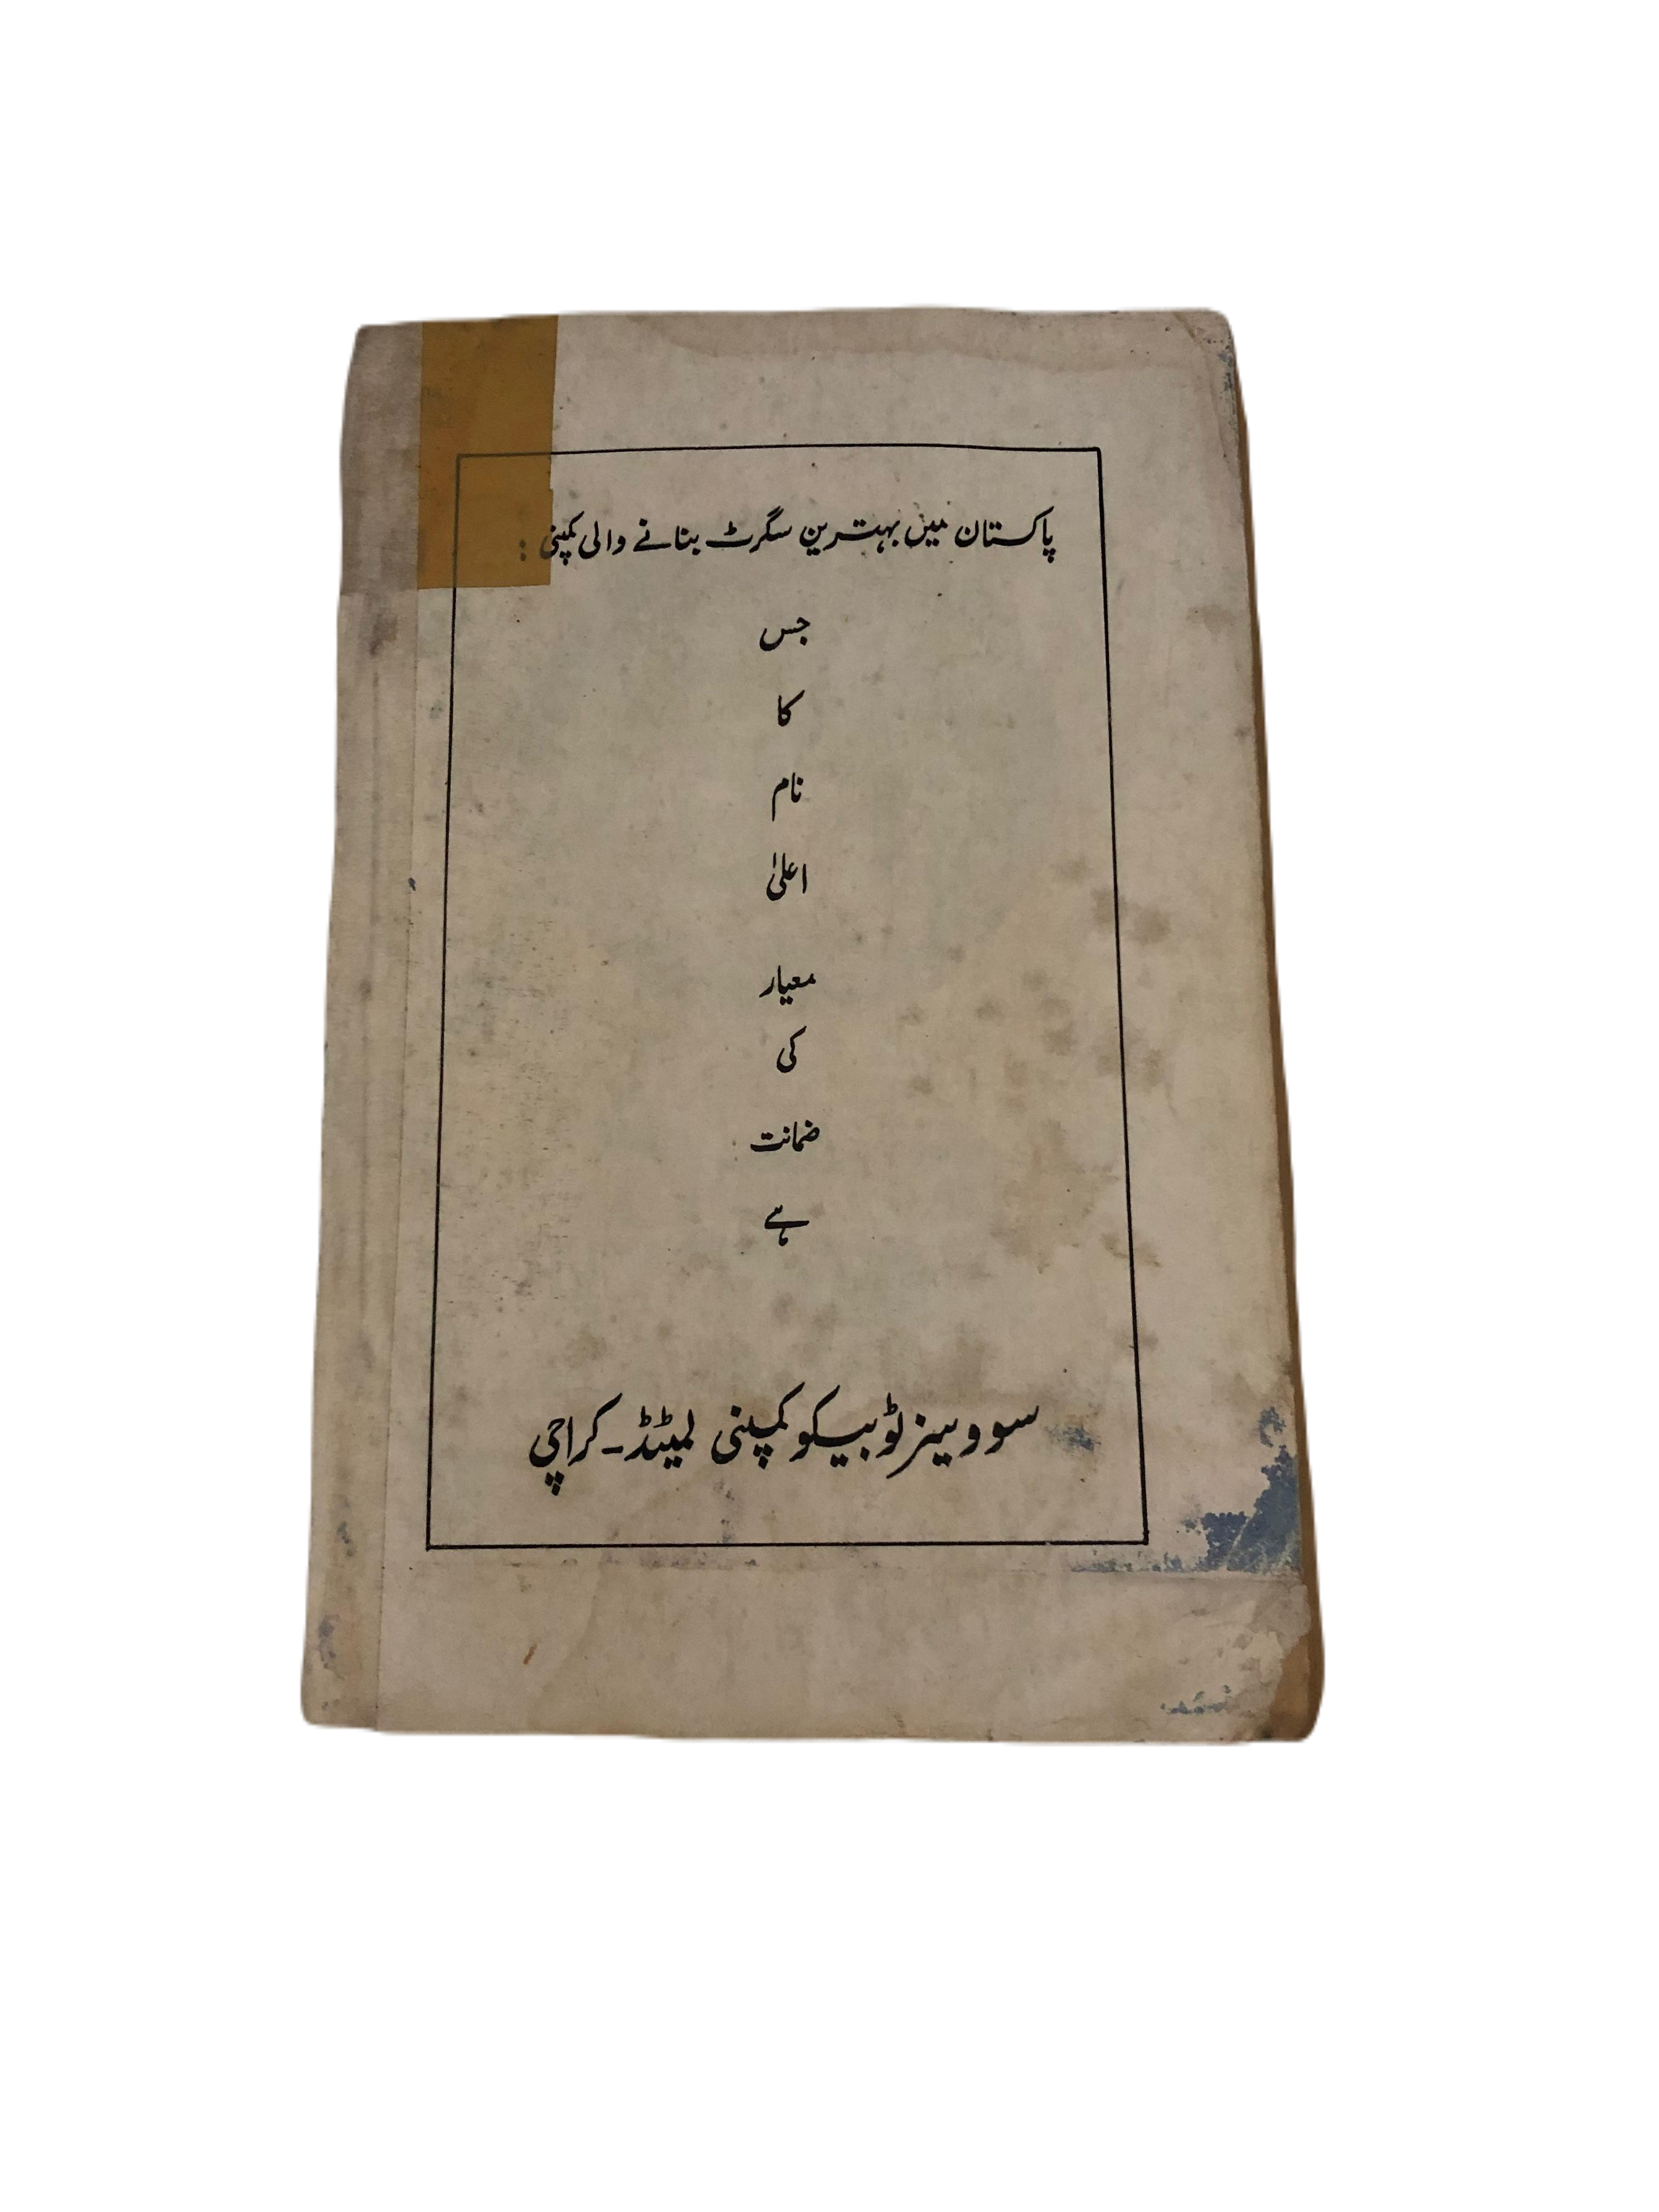 پاکستان میں بہترین سگرٹ بنانے والی کمپنی :
جس
کا
نام
اعلیٰ
معیار
کی
ضمانت
ہے
سووینز ٹوبیکو کمپنی لمیٹڈ۔ کراچی